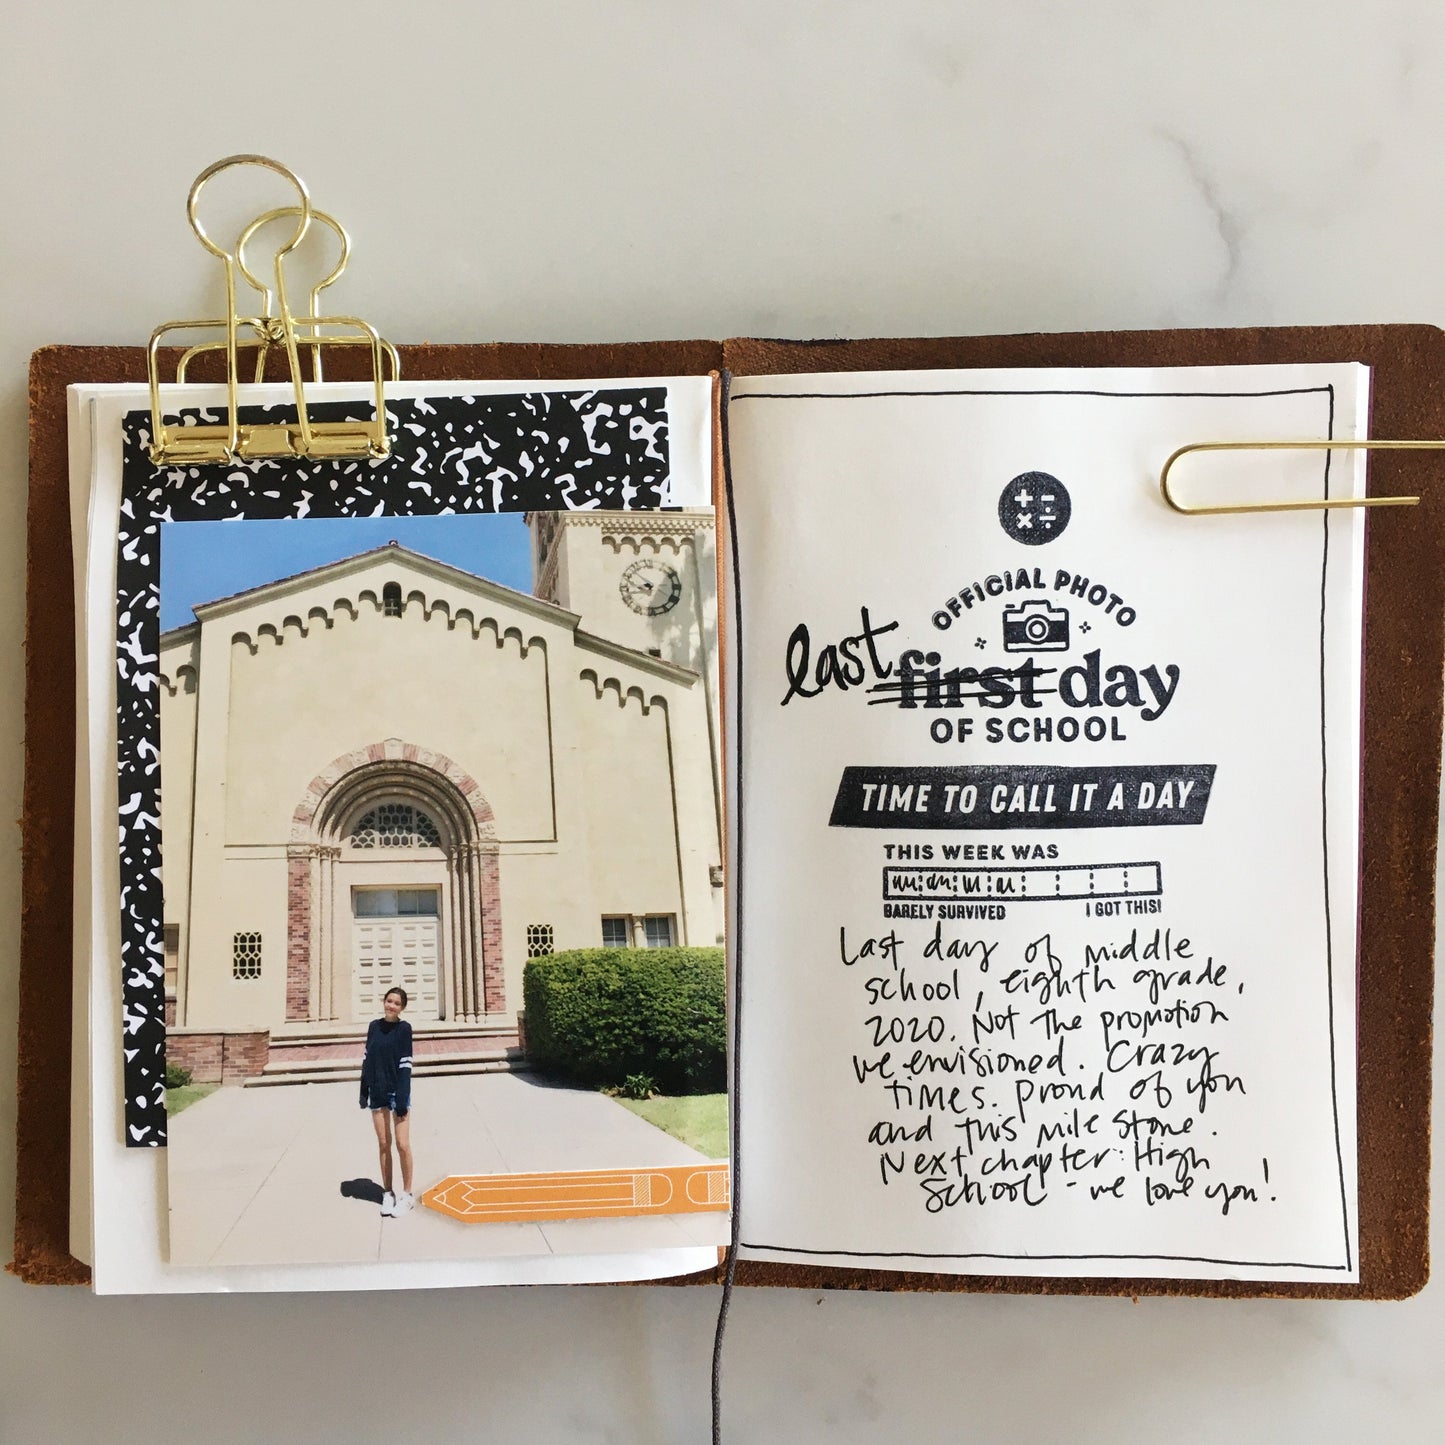 OFFICIAL PHOTO
last first day
OF SCHOOL
TIME TO CALL IT A DAY
THIS WEEK WAS
BARELY SURVIVED I GOT THIS!
Last day of middle
school, eighth grade,
2020. Not the promotion
we envisioned. Crazy
times. Proud of you
and this mile stone.
Next chapter: High
School - we love you!